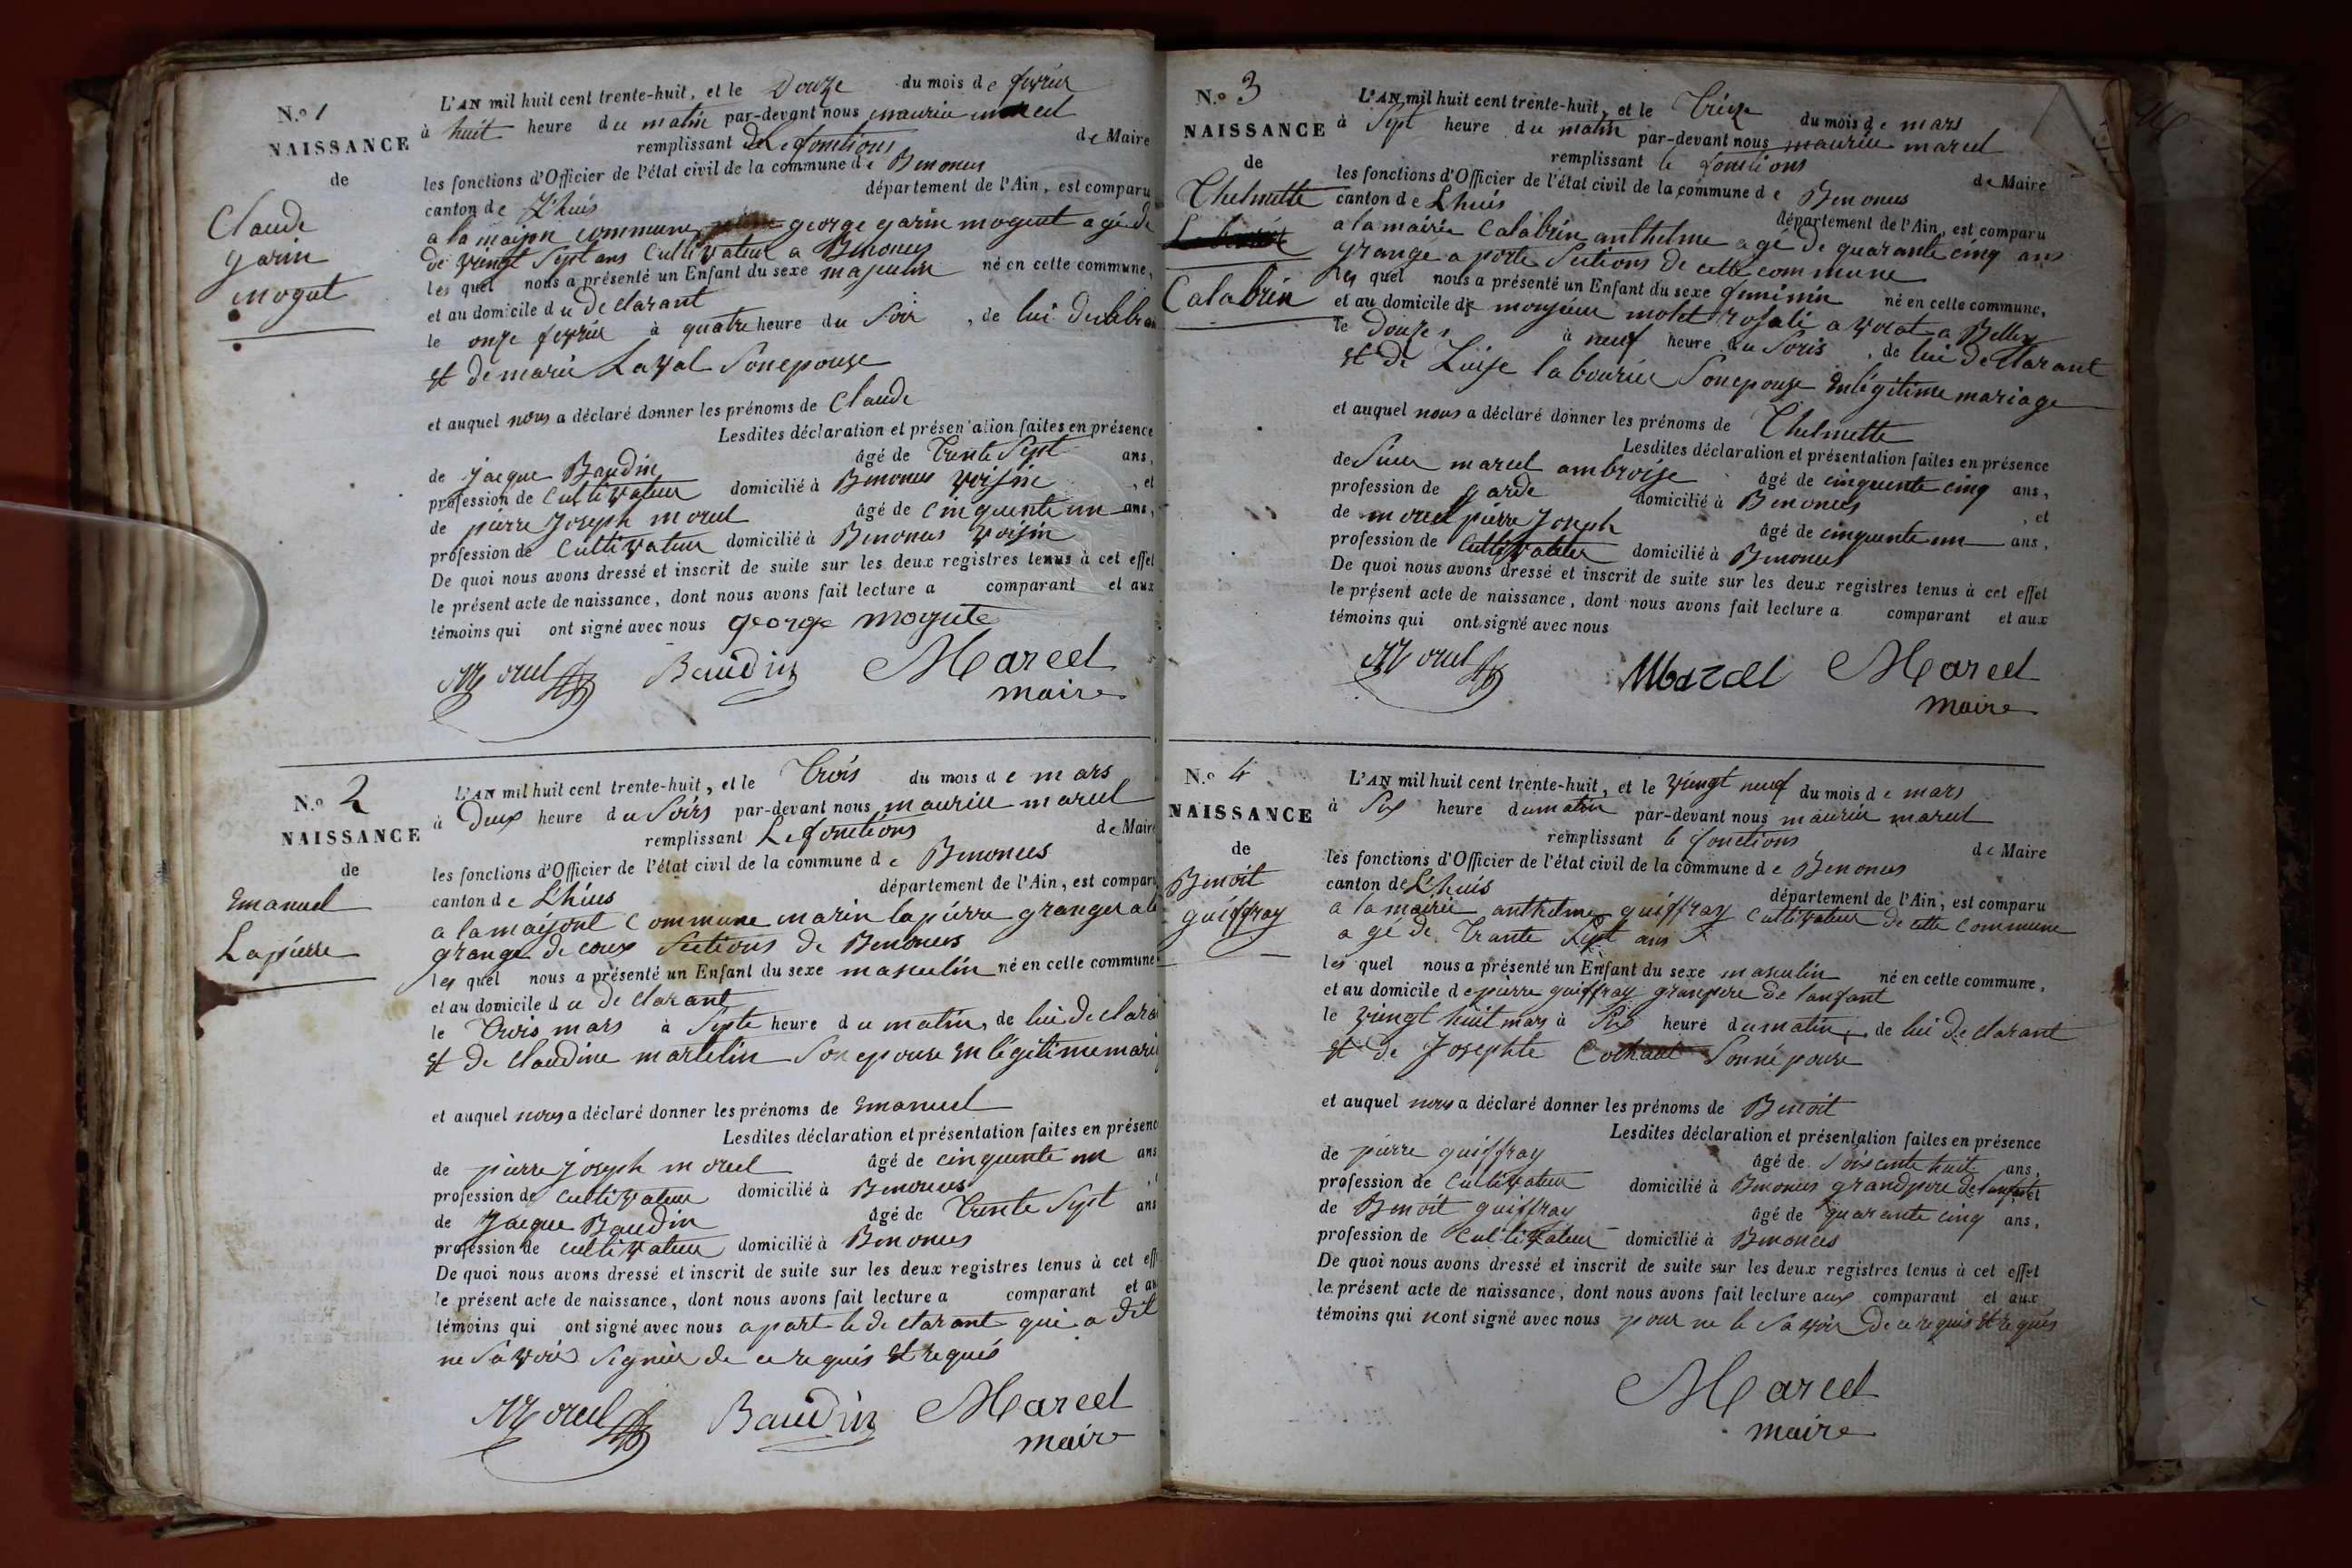 N.o 1
NAISSANCE
de
Claude
garin
mogut
L'AN mil huit cent trente-huit, et le Douze du mois de fevrier
à huit heure du matin par-devant nous maurice marcel
remplissant Le fonctions de Maire
les fonctions d'Officier de l'état civil de la commune de Benonces
canton de L'huis département de l'Ain, est comparu
a la maison commune george garin mogut agé de
de vingt Sept ans Cultivateur a Benonces
les quel nous a présenté un Enfant du sexe masculin né en cette commune,
et au domicile du declarant
le onze fevrier à quatre heure du Soir, de lui declaran
et de marie Laval Son epouse
et auquel nous a déclaré donner les prénoms de Claude
Lesdites déclaration et présentation faites en présence
de jacque Baudin âgé de trente Sept ans,
profession de Cultivateur domicilié à Benonces voisin, et
de pierre Joseph morel âgé de cinquente un ans,
profession de Cultivateur domicilié à Benonces voisin
De quoi nous avons dressé et inscrit de suite sur les deux registres tenus à cet effet
le présent acte de naissance, dont nous avons fait lecture a comparant et aux
témoins qui ont signé avec nous george mogute
Morel Baudin Marcel
maire
N.o 2
NAISSANCE
de
Emanuel
Lapierre
L'AN mil huit cent trente-huit, et le Trois du mois de mars
à Deux heure du Soirs par-devant nous maurice marcel
remplissant Le fonctions de Maire
les fonctions d'Officier de l'état civil de la commune de Benonces
canton de L'huis département de l'Ain, est comparu
a la maisont Commune marin lapierre granger a la
grange de coux Sections de Benonces
les quel nous a présenté un Enfant du sexe masculin né en cette commune
et au domicile du declarant
le Trois mars à Septe heure du matin, de lui declara
et de claudine martelin Son epouse en légitime maria
et auquel nous a déclaré donner les prénoms de Emanuel
Lesdites déclaration et présentation faites en présenc
de pierre joseph morel âgé de cinquente un ans
profession de cultivateur domicilié à Benonces
de Jacque Baudin âgé de trente Sept ans
profession de cultivateur domicilié à Benonces
De quoi nous avons dressé et inscrit de suite sur les deux registres tenus à cet eff
le présent acte de naissance, dont nous avons fait lecture a comparant et au
témoins qui ont signé avec nous a part le declarant qui a dit
ne Savoir Signier de ce requis et requis
Morel Baudin Marcel
maire
N.o 3
NAISSANCE
de
Thelmette
Calabrin
L'AN mil huit cent trente-huit, et le Treize du mois de mars
à Sept heure du matin par-devant nous maurice marcel
remplissant le fonctions de Maire
les fonctions d'Officier de l'état civil de la commune de Benonces
canton de L'huis département de l'Ain, est comparu
a la mairie Calabrin anthelme agé de quarante cinq ans
grangé a porte Sections de cette commune
les quel nous a présenté un Enfant du sexe feminin né en cette commune,
et au domicile de monsieur molet rosali avocat a Belley
le douze à neuf heure du Soris, de lui declarant
et de Luise labourier Son epouse en légitime mariage
et auquel nous a déclaré donner les prénoms de Thelmette
Lesdites déclaration et présentation faites en présence
de Sieur marcel ambroise âgé de cinquente cinq ans,
profession de garde domicilié à Benonces, et
de morel pierre Joseph âgé de cinquente un ans,
profession de Cultivateur domicilié à Benonces
De quoi nous avons dressé et inscrit de suite sur les deux registres tenus à cet effet
le présent acte de naissance, dont nous avons fait lecture a comparant et aux
témoins qui ont signé avec nous
Morel Marcel Marcel
maire
N.o 4
NAISSANCE
de
Benoit
guiffray
L'AN mil huit cent trente-huit, et le vingt neuf du mois de mars
à Six heure du matin par-devant nous maurice marcel
remplissant le fonctions de Maire
les fonctions d'Officier de l'état civil de la commune de Benonces
canton de L'huis département de l'Ain, est comparu
a la mairie anthelme guiffray Cultivateur de cette Commune
agé de Trante Sept ans
les quel nous a présenté un Enfant du sexe masculin né en cette commune,
et au domicile de pierre guiffray granpere de lanfant
le vingt huit mars à Six heure du matin, de lui declarant
et de Josephte Sonné pouse
et auquel nous a déclaré donner les prénoms de Benoit
Lesdites déclaration et présentation faites en présence
de pierre guiffray âgé de Soixcente huit ans,
profession de Cultivateur domicilié à Benonces grandpere de lanfant et
de Benoit guiffray âgé de quarente cinq ans,
profession de Cultivateur domicilié à Benonces
De quoi nous avons dressé et inscrit de suite sur les deux registres tenus à cet effet
le présent acte de naissance, dont nous avons fait lecture aux comparant et aux
témoins qui nont signé avec nous pour ne le Savoir de ce requis et requis
Marcel
maire